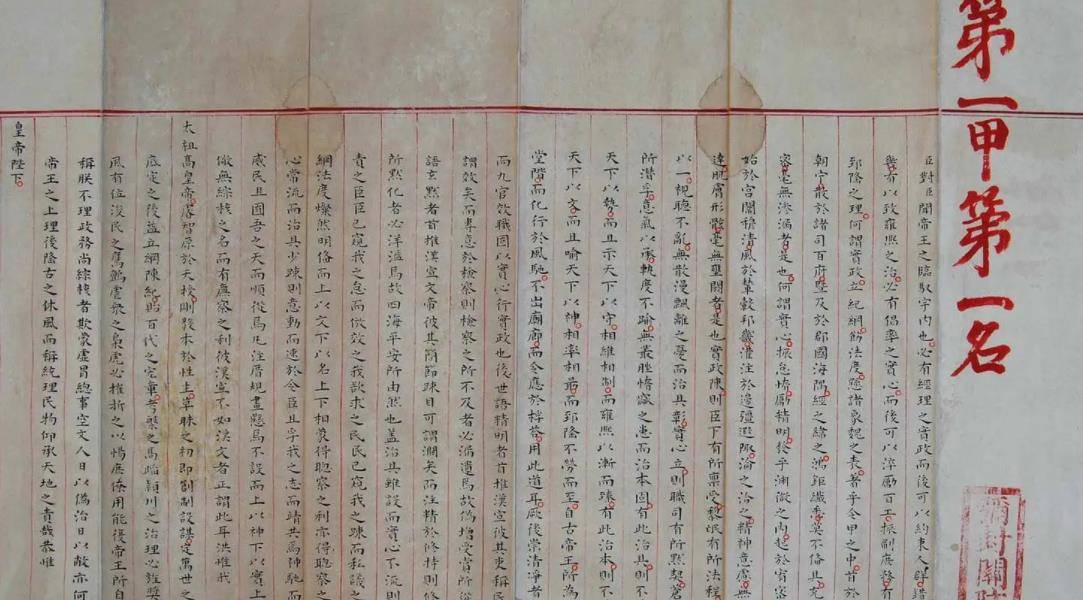 第一甲第一名
彌封關防
臣對臣聞帝王之臨馭宇內也必有經理之實政而後可以約束人群錯
與有以致雍熙之治必有倡率之實心而後可以淬勵百工振刷庶務有
郅隆之理何謂實政立紀綱飭法度懸諸象魏之表著乎令甲之中首於
朝宁散於諸司百府暨及於郡國海隅經之緯之鴻鉅纖悉莫不備具充
密毫無滲漏者是也何謂實心振怠惰勵精明發乎淵微之內起於宥密
始於宮闈穆清風於輦轂邦畿灌注於邊疆遐陬淪之洽之精神意慮無
達肌膚形骸毫無壅閼者是也實政陳則臣下有所稟受黎氓有所法程
以一視聽不亂無散漫飄離之憂而治具彰實心立則職司有所默契蒼
所潛孚意氣以承軌度不踰無叢脞惰窳之患而治本固有此治具則不
天下以勢而且示天下以守相維相制而雍熙以漸而臻有此治本則不
天下以文而且喻天下以神相率相勗而郅隆不勞而至自古帝王所為
堂階而化行於風馳不出廟廊而令應於桴答用此道耳厥後崇清凈者
而九官效職固以實心行實政也後世語精明者首推漢宣彼其吏稱民
謂效矣而專意於檢察則檢察之所不及者必漏遺焉故偽增受賞所從
語玄默者首推漢文帝彼其簡節疎目可謂濶矣而注精於修持則修
所默化者必洋溢焉故四海平安所由然也蓋治具雖設而實心不流則
責之臣臣已窺我之怠而倣效之我欲求之民民已窺我之疎而私議之
綱法度燦然明備而上以文下以名上下相蒙得聰察之利亦得聰察之
心常流而治具少疎則意動而速於令臣且孚我之志而靖共焉神馳而
威民且囿吾之天而順從焉凡注厝規畫懸焉不設而上以神下以實上
儆無綜核之名而有廉察之利彼漢宣不如漢文者正謂此耳洪惟我
太祖高皇帝睿智原於天授剛毅本於性生草昧之初即創制設謀定萬世之
底定之後益立綱陳紀貽百代之定章考槃之馬蹄潁川之治理必旌獎
風有位浚民之鷹鸇虐眾之梟虎必摧折之以惕庶僚用能後帝王所自
稱朕不理政務尚綜核者欺蒙虛冒總事空文人日以偽治日以敝亦何
帝王之上理後隆古之休風而稱統理民物仰承天地之責哉恭惟
皇帝陛下